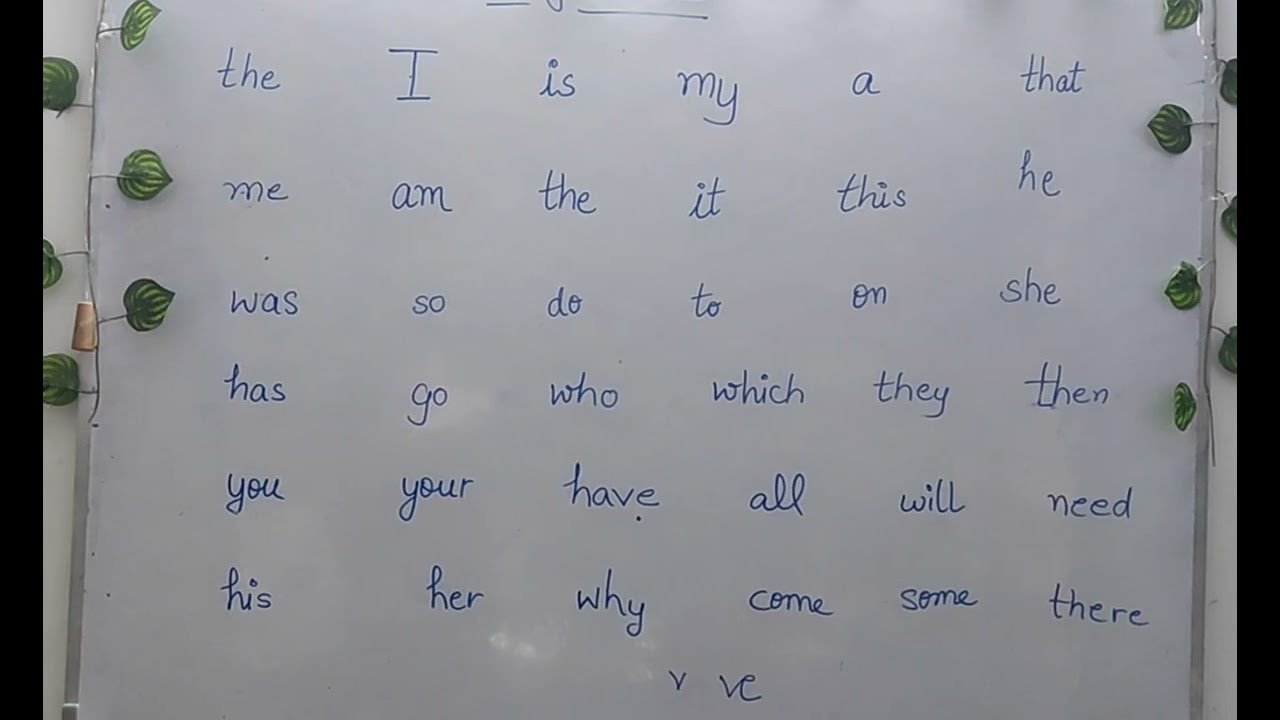 the I is my a that
me am the it this he
was so do to on she
has go who which they then
you your have all will need
his her why come some there
v ve